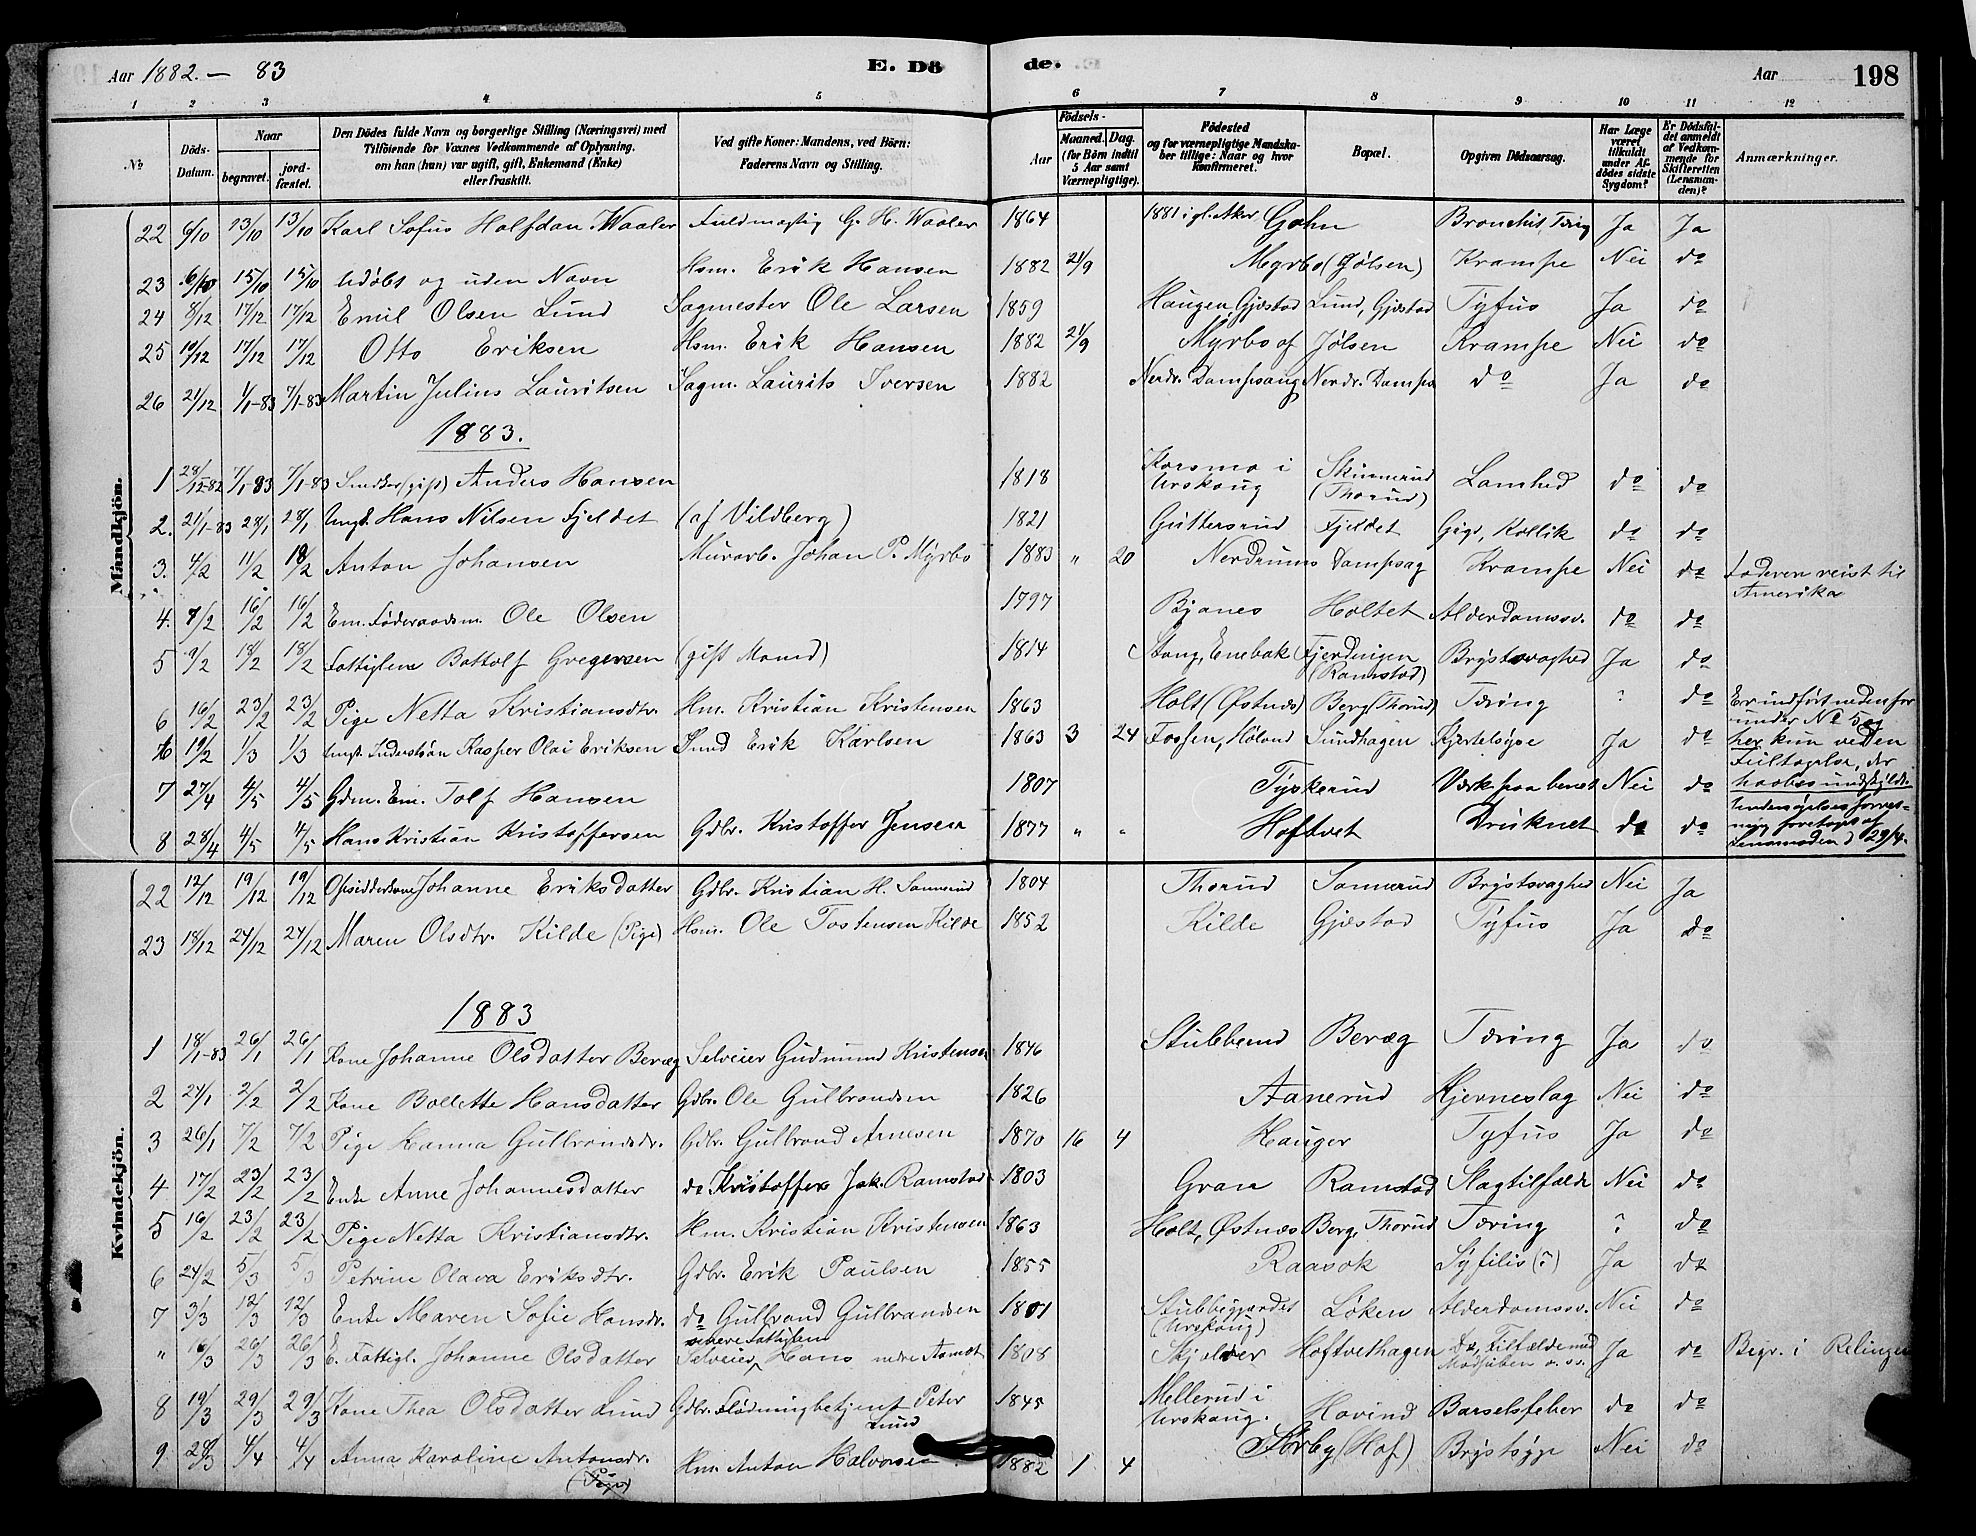 Aar 1882. — 83 E. Dö de. Aar 198
1 2 3 4 5 6 7 8 9 10 11 12
No Döds-Datum. Naar begravet. jord-fæstet. Den Dödes fulde Navn og borgerlige Stilling (Næringsvei) med Tilföiende for Voxnes Vedkommende af Oplysning, om han (hun) var ugift, gift, Enkemand (Enke) eller fraskilt. Ved gifte Koner: Mandens, ved Börn: Faderens Navn og Stilling. Födsels- Aar Maaned. Dag. (for Börn indtil 5 Aar samt Værnepligtige). Födested og for værnepligtige Mandska-ber tillige: Naar og hvor Konfirmeret. Bopæl. Opgiven Dödsaarsag. Har Læge været tilkaldt under Af-dödes sidste Sygdom? Er Dödsfal-det anmeldt af Vedkom-mende for Skifteretten (Lensman-den)? Anmærkninger.
Mandkjön.
22 6/10 13/10 13/10 Karl Sofus Halfdan Waaler Fuldmægtig G. H. Waaler 1864 1881 i gl. Aker Gahn Bronchit, Tæring Ja Ja
23 6/10 15/10 15/10 Udøbt og uden Navn Hsm. Erik Hansen 1882 21/9 Myrbo (Jølsen) Krampe Nei do
24 8/12 17/12 17/12 Emil Olsen Lund Sagmester Ole Larsen 1859 Haugen, Gjæstad Lund, Gjæstad Tyfus Ja do
25 10/12 17/12 17/12 Otto Eriksen Hsm. Erik Hansen 1882 21/9 Myrbo af Jølsen Krampe Nei do
26 21/12 1/1-83 7/1-83 Martin Julius Lauritsen Sagm. Laurits Iversen 1882 Nerdr. Dampsaug Nerdr. Damps do Ja do
1883.
1 28/12-82 7/1-83 7/1-83 Snedker (gift) Anders Hansen 1818 Korsmo i Urskoug Skinnerud (Thorud) Lamhed do do
2. 21/1-83 28/1 28/1 Ungk. Hans Nilsen Fjeldet (af Vildberg) 1821 Guttersrud Fjeldet Gigt, Kollik do do
3. 4/2 11/2 18/2 Anton Johansen Murarb. Johan P. Myrbo 1883 " 20 Nerdrums Dampsag Krampe Nei do Faderen reist til Amerika
4. 7/2 16/2 16/2 Em. Føderaadsm. Ole Olsen 1797 Bjanes Holtet Alderdomssv. do do
5 9/2 18/2 18/2 Fattiglem Bottolf Gregersen (gift Mand) 1814 Stang, Enebak Fjerdingen (Ramstad) Brystsvaghed Ja do
6 16/2 23/2 23/2 Pige Netta Kristiansdtr. Hm. Kristian Kristensen 1863 Holt (Østnæs) Berg (Thorud) Tæring ? do Er indført nedenfor under No 5 og her kun ved en Feiltagelse, der
6 19/2 1/3 1/3 Ungk. Inderstsøn Kasper Olai Eriksen Lund Erik Karlsen 1863 3 24 Fossen, Høland Sundhagen Kjertelsyge Ja do
7 27/4 4/5 4/5 Gdm. Em. Tolf Hansen 1807 Tyskerud Værk paa benet Nei do
8 28/4 4/5 4/5 Hans Kristian Kristoffersen Gdbr. Kristoffer Jensen 1877 " " Hoftvet Druknet do do Undersøgelsesforret-ning foretages af Lensmanden d 29/4.
Kvindekjön.
22 12/12 19/12 19/12 Johanne Eriksdatter Gdbr. Kristian H. Sannerud 1804 Thorud Sannerud Brystsvaghed Nei Ja
23 18/12 24/12 24/12 Maren Olsdtr. Kilde (Pige) Hsm. Ole Tostensen Kilde 1852 Kilde Gjæstad Tyfus Ja do
1883
1 18/1-83 26/1 26/1 Kone Johanne Olsdatter Beræg Selveier Gudmund Kristensen 1846 Stubberud Beræg Tæring Ja do
2 24/1 2/2 2/2 Kone Bollette Hansdatter Gdbr. Ole Gulbrandsen 1826 Aanerud Hjerneslag Nei do
3 26/1 7/2 7/2 Pige Hanna Gulbrandsdr. Gdbr. Gulbrand Arnesen 1870 16 4 Hauger Tyfus Ja do
4 17/2 23/2 23/2 Enke Anne Johannesdatter do Kristoffer Jak. Ramstad 1803 Gran Ramstad Slagtilfælde Nei do
5 16/2 23/2 23/2 Pige Netta Kristiansdtr. Hm. Kristian Kristensen 1863 Holt, Østnæs Berg, Thorud Tæring ? do
6 24/2 5/3 5/3 Petrine Olava Eriksdtr. Gdbr. Erik Paulsen 1855 Raasok Syfilis (?) Ja do
7 3/3 12/3 12/3 Enke Maren Sofie Hansdr. do Gulbrand Gulbrandsen 1801 Stubbegjærdet (Urskoug) Løken Alderdomssv. Nei do
" 16/3 26/3 26/3 E. Fattigl. Johanne Olsdatter Selveier senere Fattiglem Hans nedre Aamot 1808 Skjælver Hoftvethagen Ja do Begr. i Relingen
8 19/3 29/3 29/3 Kone Thea Olsdatter Lund Gdbr. Flødningbetjent Peter Lund 1845 Mellerud i Urskoug. Hovind Barselsfeber do do
9 28/3 4/4 4/4 Anna Karoline Antonsdr. (Pige) Hm. Anton Halvorsen 1882 1 4 Sørby (Hof) Brystsyge Nei do